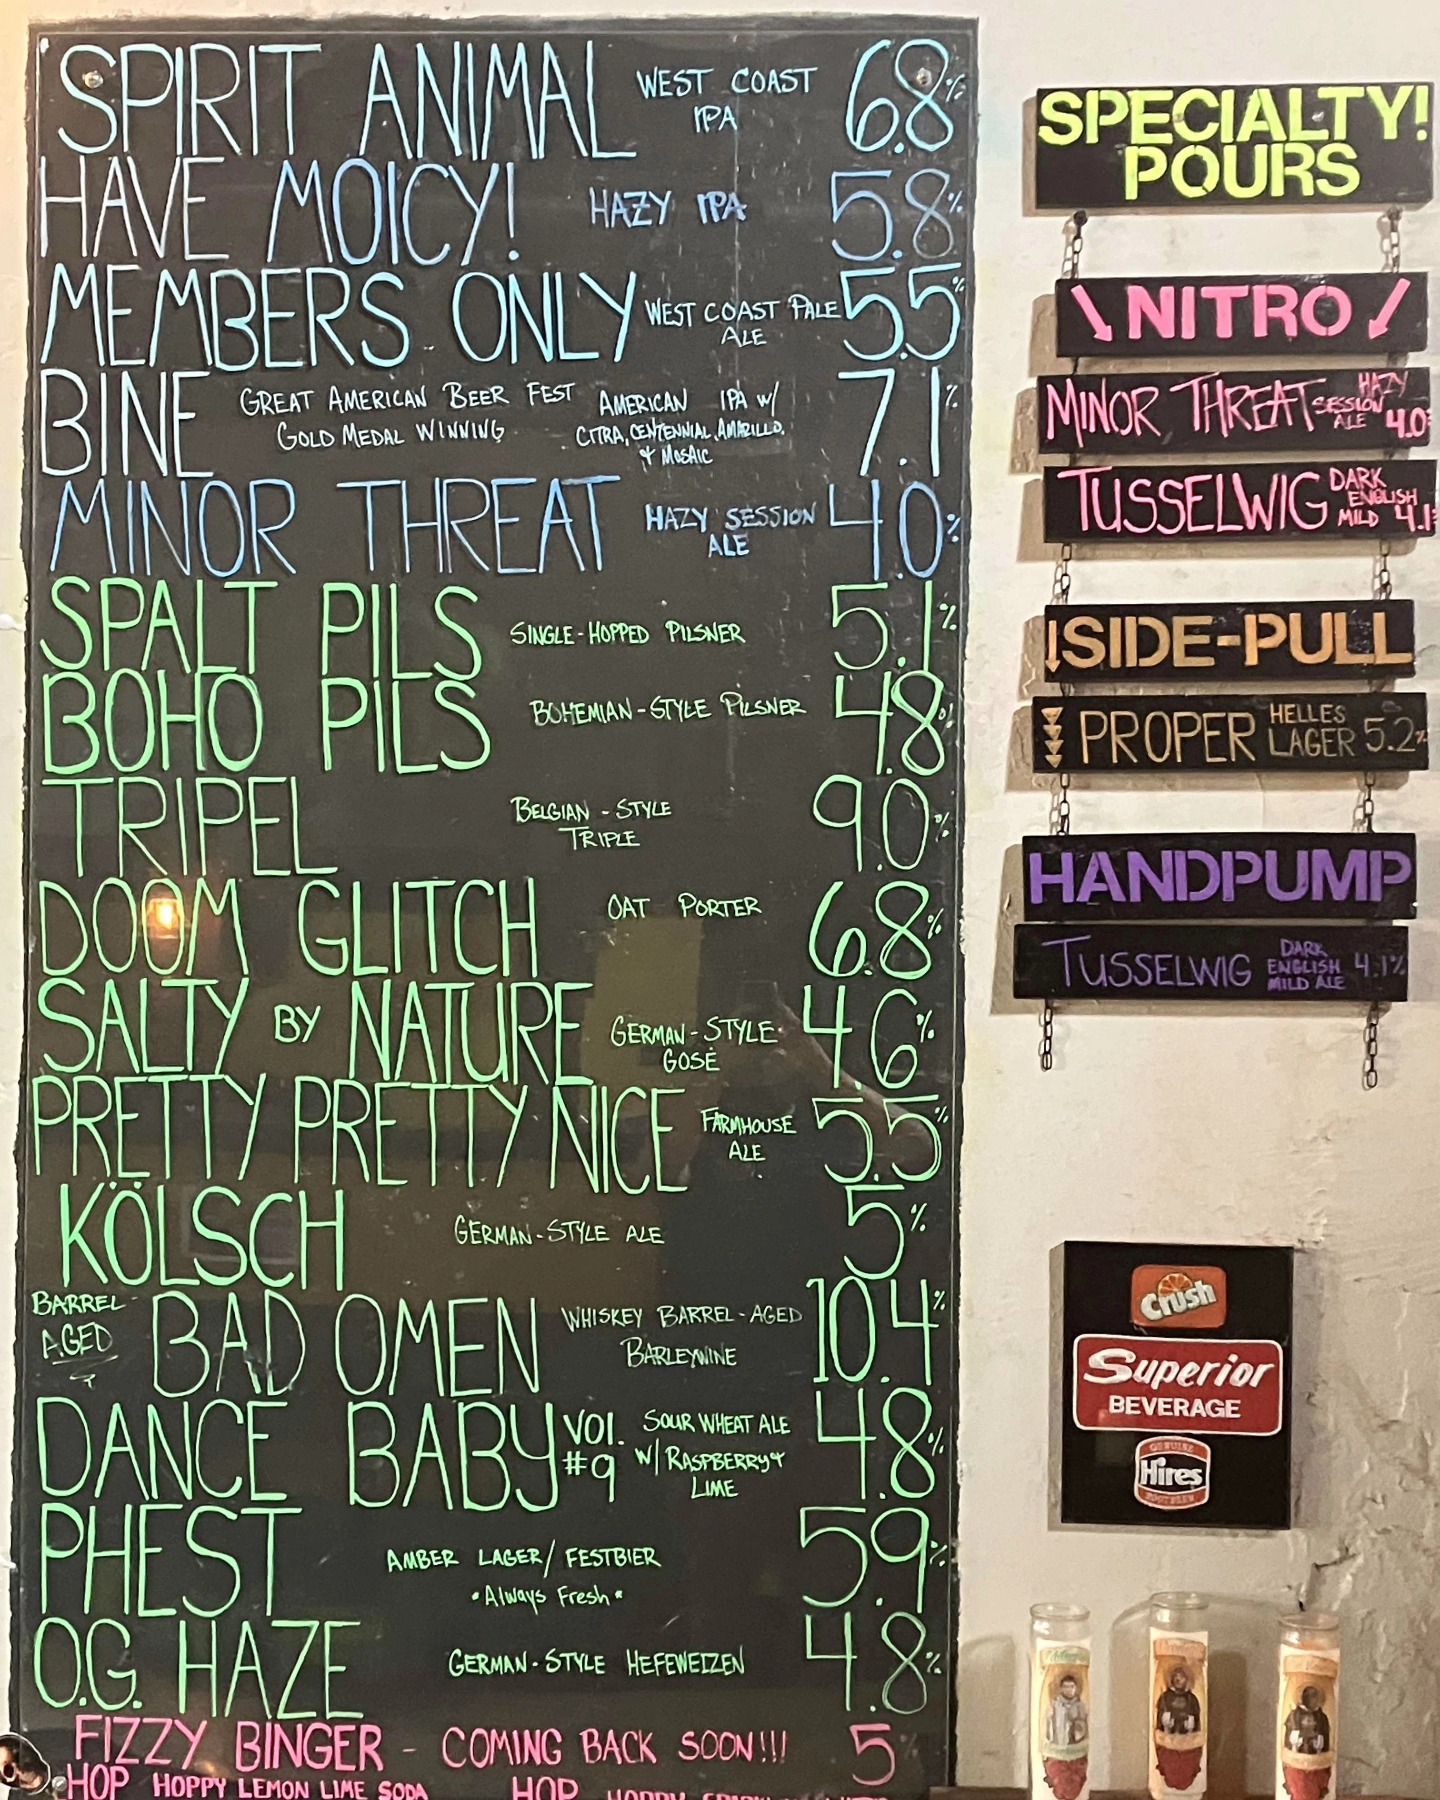 SPIRIT ANIMAL WEST COAST IPA 6.8%
HAVE MOICY! HAZY IPA 5.8%
MEMBERS ONLY WEST COAST PALE ALE 5.5%
BINE GREAT AMERICAN BEER FEST GOLD MEDAL WINNING AMERICAN IPA W/ CITRA, CENTENNIAL, AMARILLO, & MOSAIC 7.1%
MINOR THREAT HAZY SESSION ALE 4.0%
SPALT PILS SINGLE-HOPPED PILSNER 5.1%
BOHO PILS BOHEMIAN-STYLE PILSNER 4.8%
TRIPEL BELGIAN-STYLE TRIPLE 9.0%
DOOM GLITCH OAT PORTER 6.8%
SALTY BY NATURE GERMAN-STYLE GOSE 4.6%
PRETTY PRETTY NICE FARMHOUSE ALE 5.5%
KÖLSCH GERMAN-STYLE ALE 5%
BARREL AGED BAD OMEN WHISKEY BARREL-AGED BARLEYWINE 10.4%
DANCE BABY VOL. #9 SOUR WHEAT ALE W/ RASPBERRY & LIME 4.8%
PHEST AMBER LAGER/FESTBIER • Always Fresh • 5.9%
O.G. HAZE GERMAN-STYLE HEFEWEIZEN 4.8%
FIZZY BINGER - COMING BACK SOON!!! 5%
HOP HOPPY LEMON LIME SODA HOP HOPPY
SPECIALTY!
POURS
NITRO
MINOR THREAT HAZY SESSION ALE 4.0%
TUSSELWIG DARK ENGLISH MILD 4.1%
SIDE-PULL
PROPER HELLES LAGER 5.2%
HANDPUMP
TUSSELWIG DARK ENGLISH MILD ALE 4.1%
Crush
Superior
BEVERAGE
GENUINE
Hires
ROOT BEER